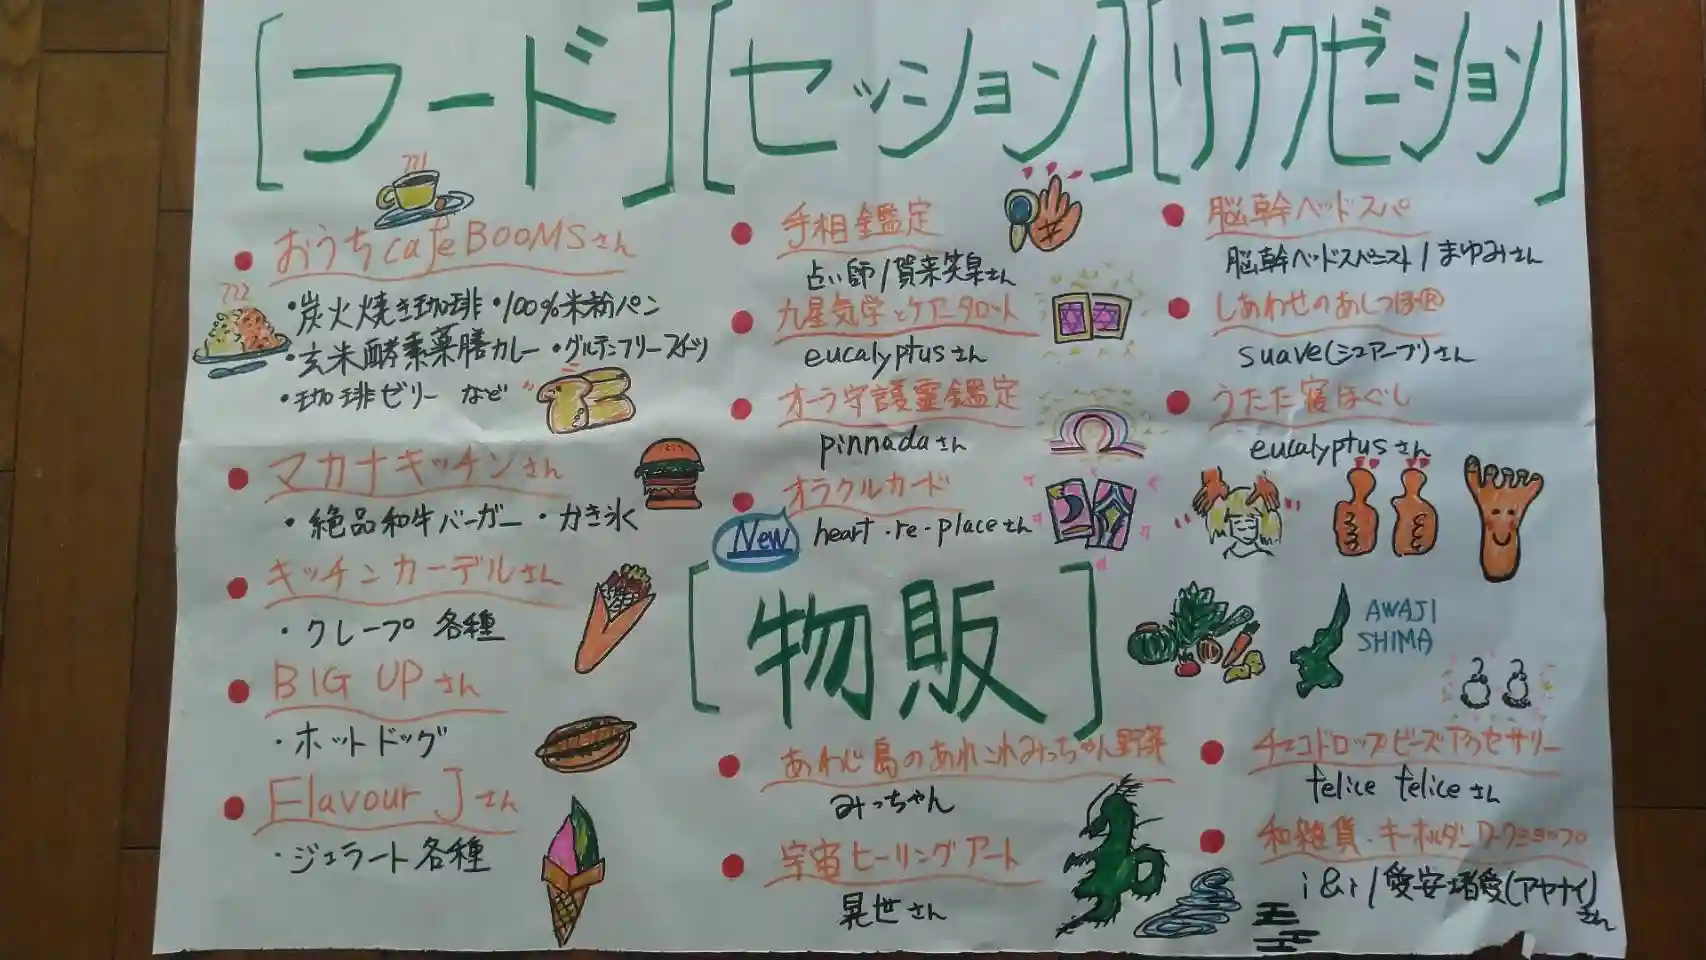 [フード]
おうちcafe BOOMSさん
・炭火焼き珈琲・100%米粉パン
・玄米酵素薬膳カレー・グルテンフリースイーツ
・珈琲ゼリー など
マカナキッチンさん
・絶品和牛バーガー・かき氷
キッチンカーデルさん
・クレープ 各種
BIG UPさん
・ホットドッグ
Flavour Jさん
・ジェラート各種
[セッション]
手相鑑定
占い師/賀来笑泉さん
九星気学とケアータロット
eucalyptusさん
オーラ守護霊鑑定
pinnadaさん
オラクルカード
New
heart・re-placeさん
[リラクゼーション]
脳幹ヘッドスパ
脳幹ヘッドスパニスト/まゆみさん
しあわせのあしつぼ®
suave(シュアーブ)さん
うたた寝ほぐし
eucalyptusさん
[物販]
AWAJI
SHIMA
あわじ島のあれこれみっちゃん野菜
みっちゃん
宇宙ヒーリングアート
晃世さん
チェコドロップビーズアクセサリー
felice feliceさん
和雑貨・キーホルダーワークショップ
i&i/愛安堵愛(アヤナイ)さん